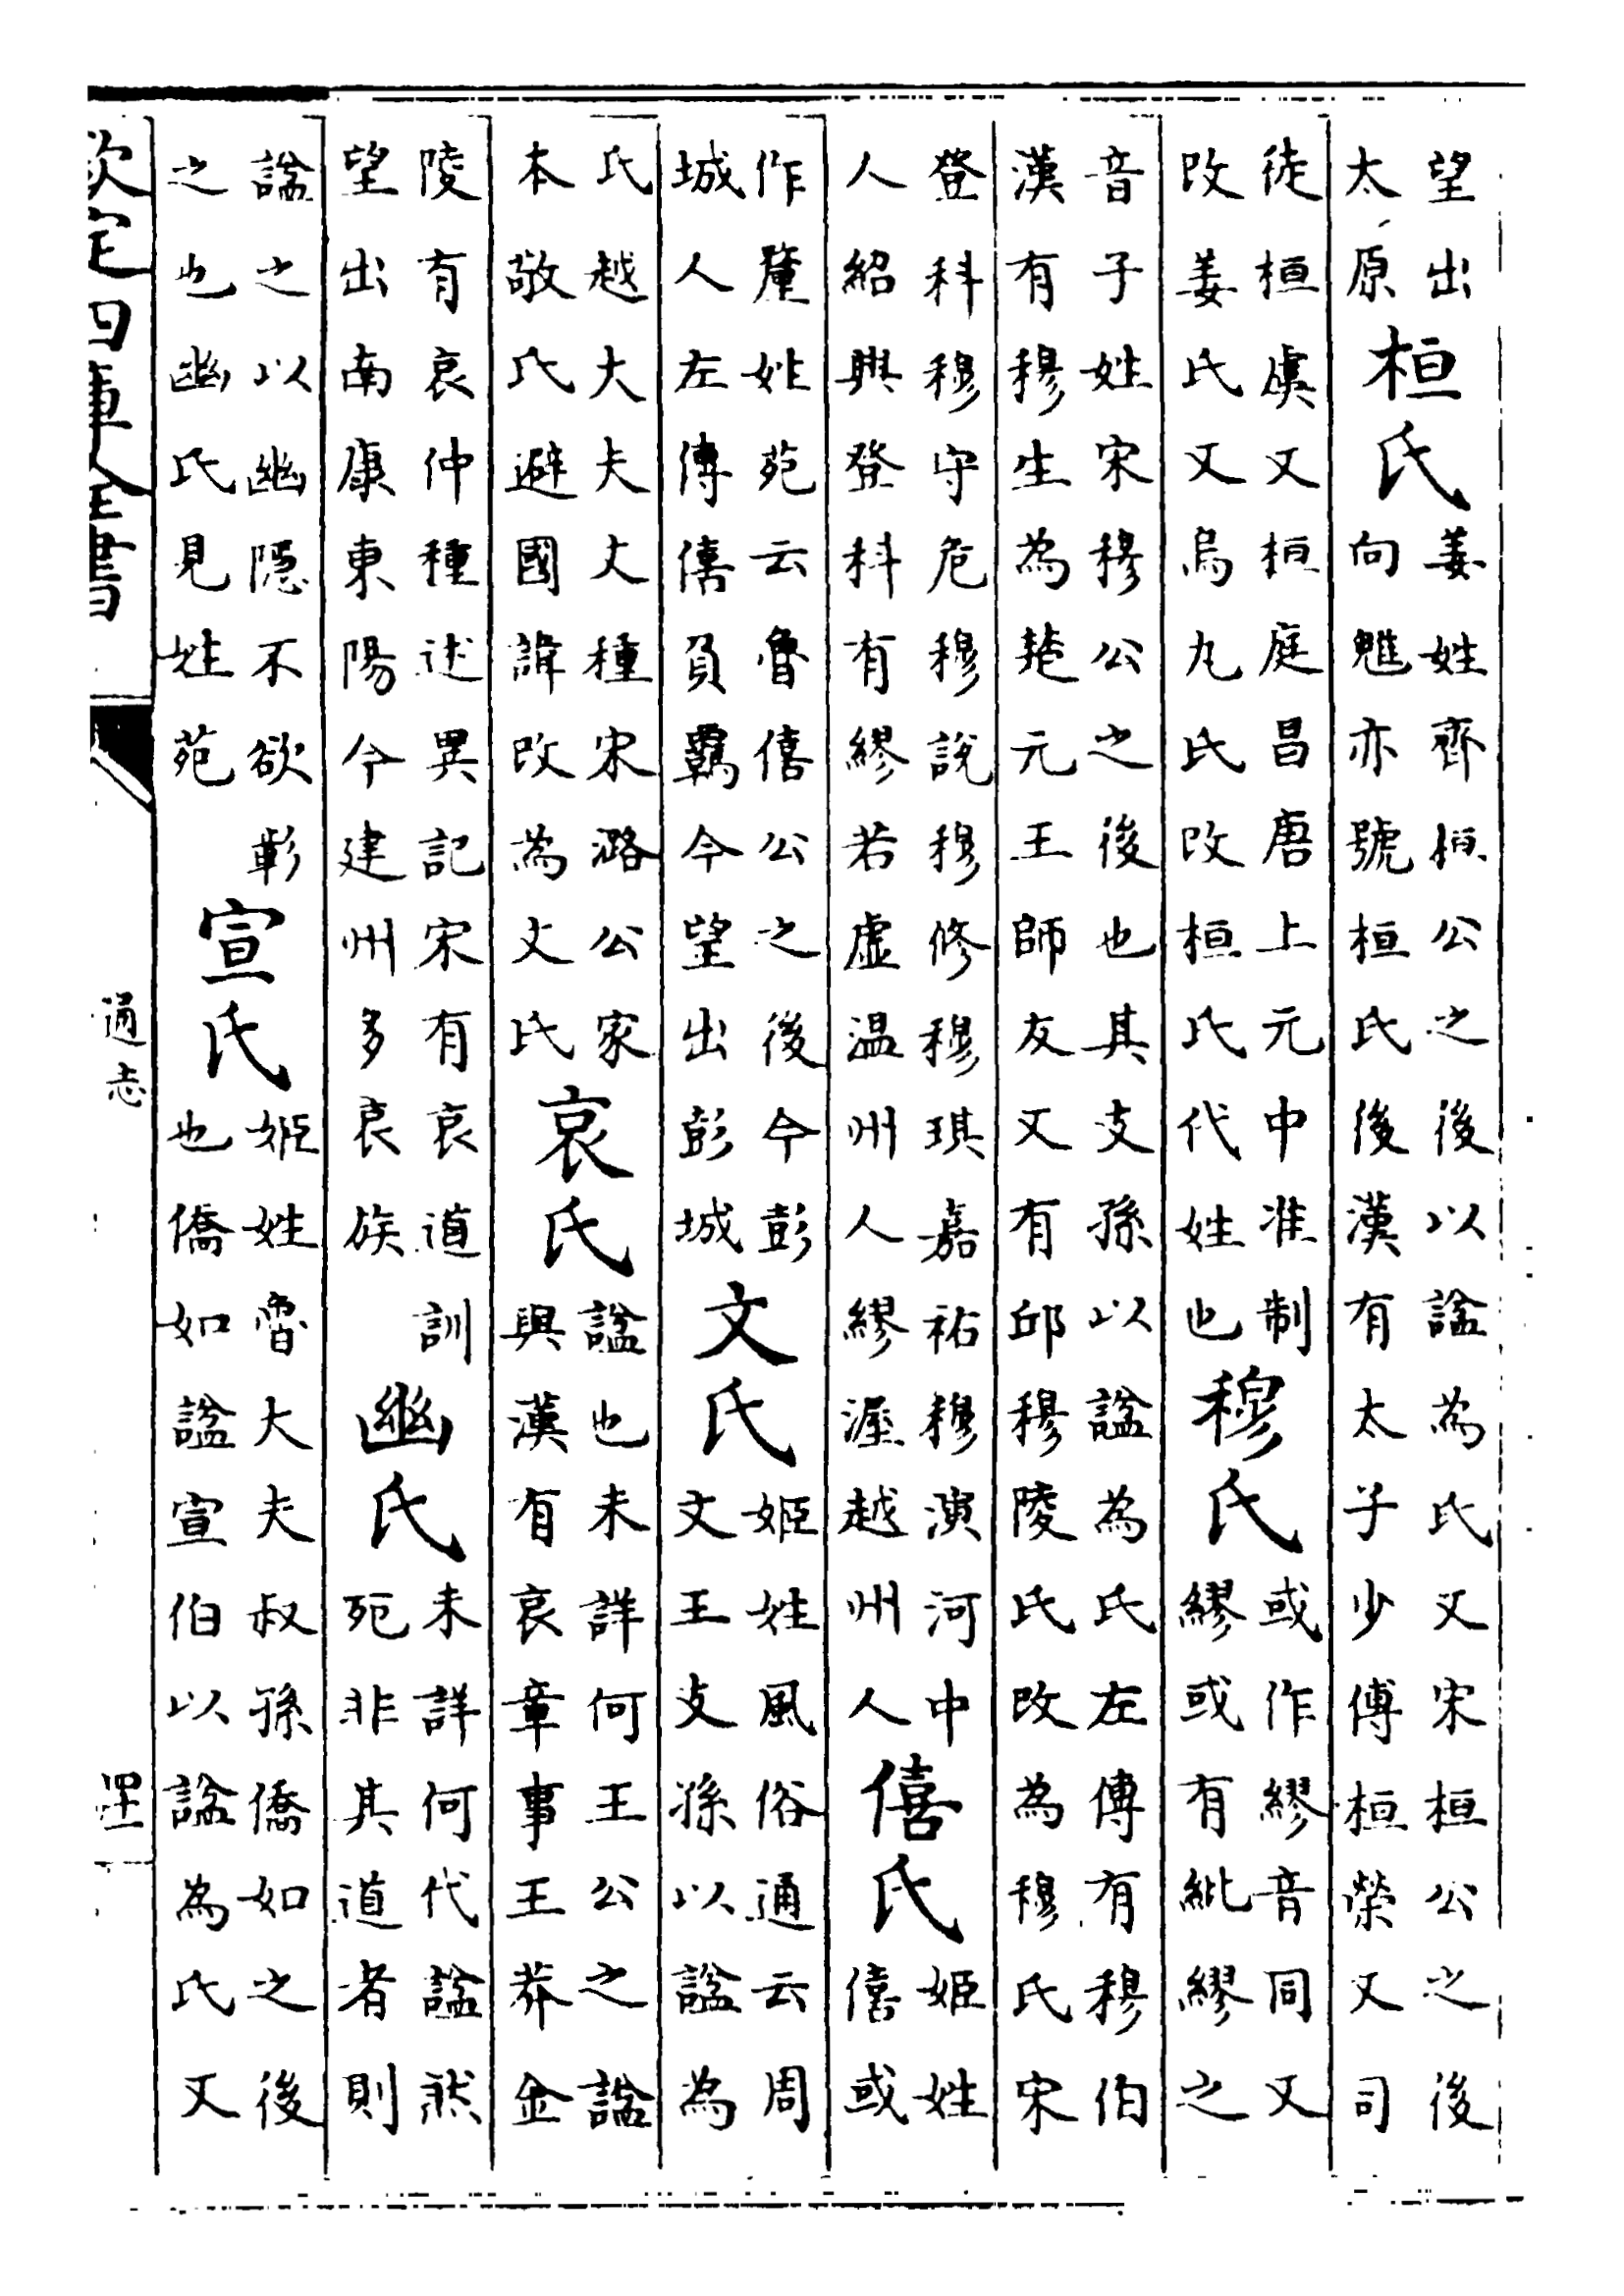 望出
太原
桓氏
姜姓齊桓公之後以諡為氏又宋桓公之後
向魋亦號桓氏後漢有太子少傅桓榮又司
徒桓虞又桓庭昌唐上元中准制
改姜氏又烏丸氏改桓氏代姓也
穆氏
或作繆音同又
繆或有紕繆之
音子姓宋穆公之後也其支孫以諡為氏左傳有穆伯
漢有穆生為楚元王師友又有邱穆陵氏改為穆氏宋
登科穆守危穆說穆修穆琪嘉祐穆演河中
人紹興登科有繆若虛温州人繆渥越州人
僖氏
姬姓
僖或
作釐姓苑云魯僖公之後今彭
城人左傳僖負羈今望出彭城
文氏
姬姓風俗通云周
文王支孫以諡為
氏越大夫文種宋潞公家
本敬氏避國諱改為文氏
哀氏
諡也未詳何王公之諡
興漢有哀章事王莽金
陵有哀仲種述異記宋有哀道訓
望出南康東陽今建州多哀族
幽氏
未詳何代諡然
死非其道者則
諡之以幽隱不欲彰
之也幽氏見姓苑
宣氏
姬姓魯大夫叔孫僑如之後
也僑如諡宣伯以諡為氏又
欽定四庫全書
通志